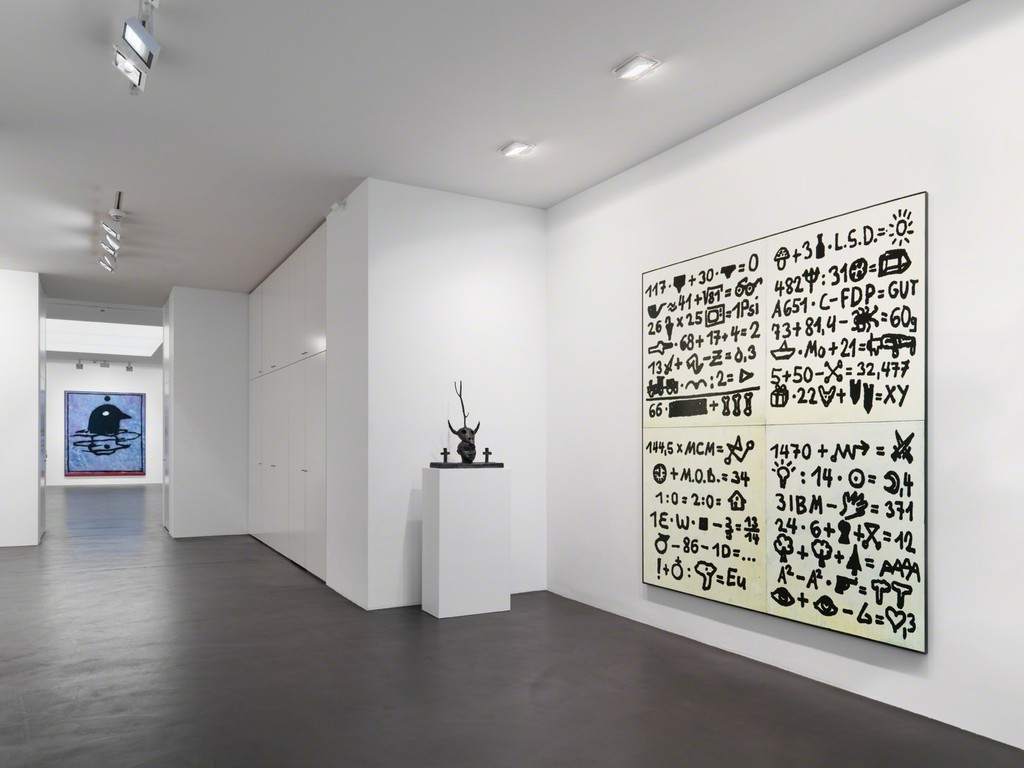 117 · + 30 · = 0
≈ 41 + √81 =
26 x 25 = 1Psi
· 68 + 17 + 4 = 2
13 + - Z = 0,3
: 2 =
66 · +
+ 3 · L.S.D. =
482 : 31 =
A651 · C-FDP = GUT
73 + 81,4 - = 60g
· Mo + 21 =
5 + 50 - = 32,477
· 22 + = XY
144,5 x MCM =
+ M.O.B. = 34
1:0 = 2:0 =
1E · W · ■ - = 13/14
- 86 - 1D = ...
! + : = Eu
1470 + =
: 14 · = ,4
3IBM - = 371
24 · 6 + + = 12
+ + = AAAA
A² - A² · =
+ - = ,3